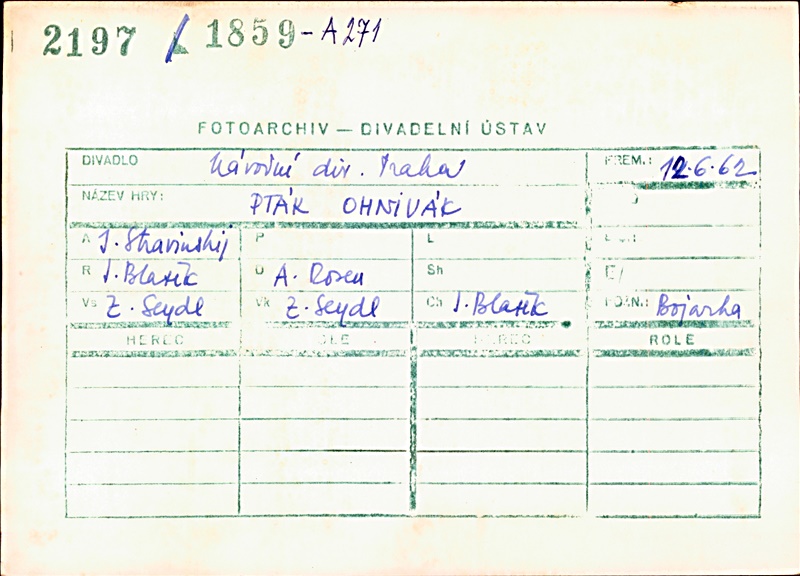 2197 / 1859-A271
FOTOARCHIV — DIVADELNÍ ÚSTAV
DIVADLO Národní div. Praha PREM.: 12.6.62
NÁZEV HRY: PTÁK OHNIVÁK
A I. Stravinskij P L
R J. Blažík D A. Rosen Sh
Vs Z. Seydl Vk Z. Seydl Ch J. Blažík POZN.: Bojarka
HEREC ROLE HEREC ROLE